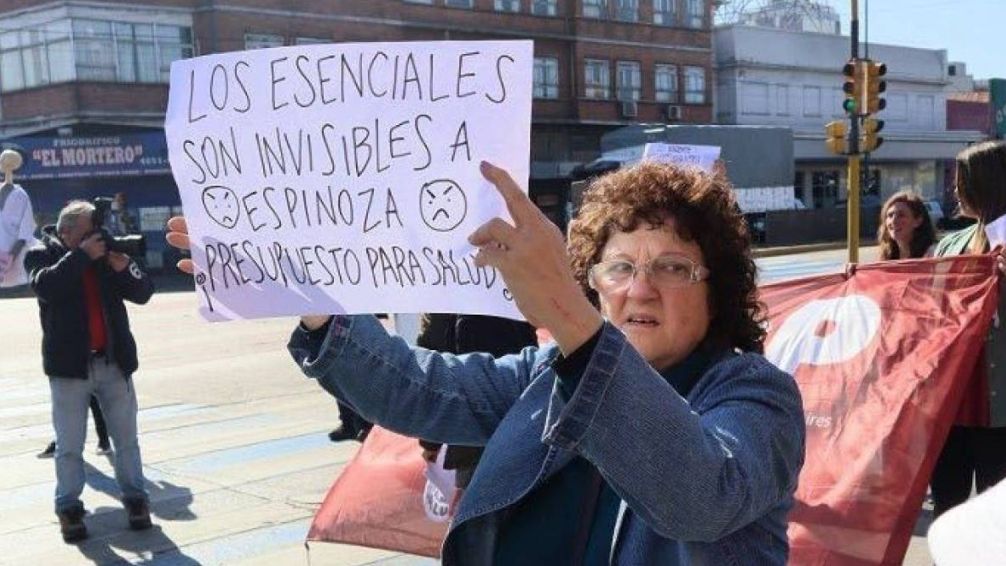 LOS ESENCIALES
SON INVISIBLES A
ESPINOZA
¡PRESUPUESTO PARA SALUD!
FRIGORIFICO
"EL MORTERO"